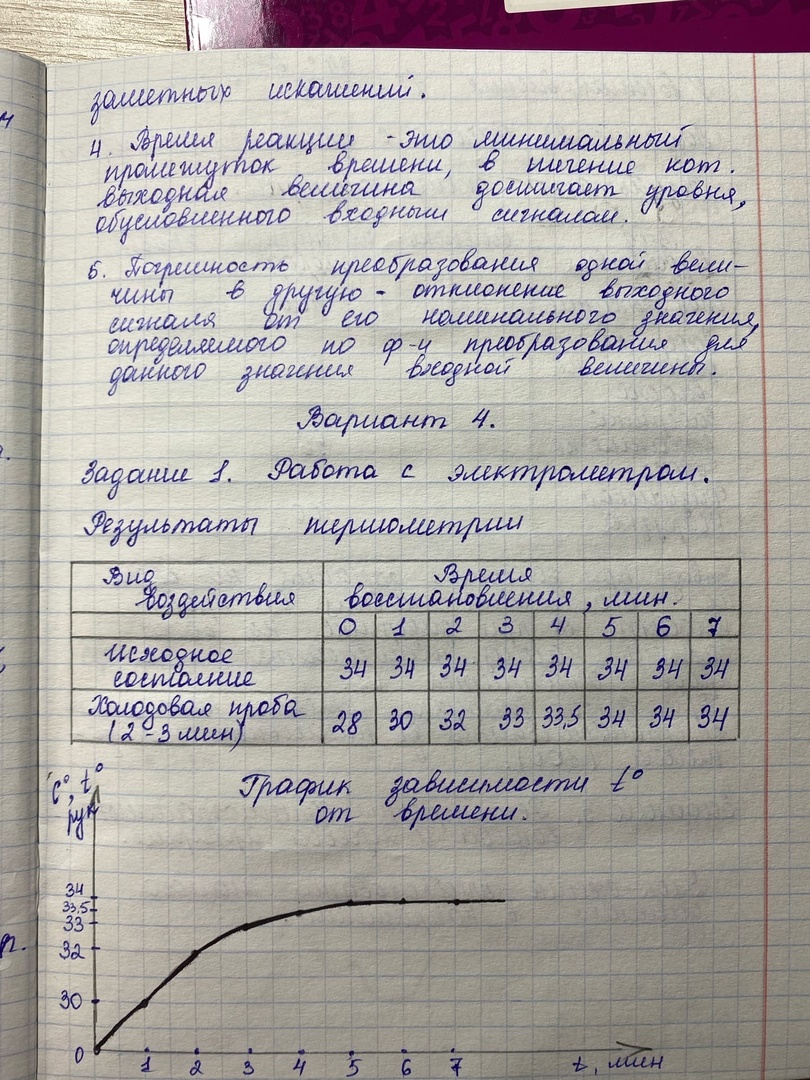 заметных искажений.
4. Время реакции - это минимальный
промежуток времени, в течение кот.
выходная величина достигает уровня,
обусловленного входным сигналам.
5. Погрешность преобразования одной вели-
чины в другую - отклонение выходного
сигнала от его номинального значения,
определяемого по ф-и преобразования для
данного значения входной величины.
Вариант 4.
Задание 1. Работа с электрометром.
Результаты термометрии
Вид воздействия
Время восстановления, мин.
0 1 2 3 4 5 6 7
Исходное состояние 34 34 34 34 34 34 34 34
Холодовая проба (2-3 мин) 28 30 32 33 33,5 34 34 34
График зависимости t°
от времени.
C°, t°
рук
34
33,5
33
32
30
0
1 2 3 4 5 6 7 t, мин